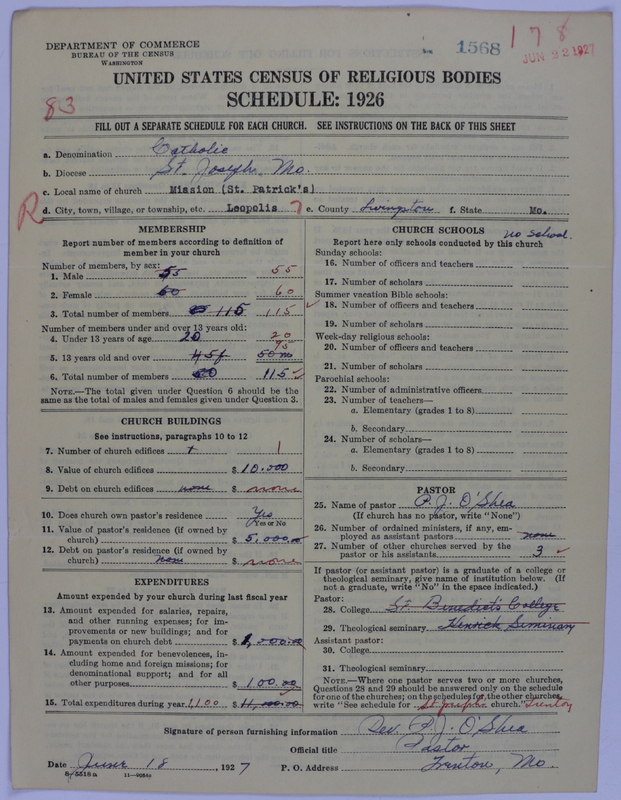 DEPARTMENT OF COMMERCE
BUREAU OF THE CENSUS
WASHINGTON
1568
178
JUN 22 1927
UNITED STATES CENSUS OF RELIGIOUS BODIES
SCHEDULE: 1926
83
FILL OUT A SEPARATE SCHEDULE FOR EACH CHURCH. SEE INSTRUCTIONS ON THE BACK OF THIS SHEET
a. Denomination Catholic
b. Diocese St. Joseph, Mo.
c. Local name of church Mission (St. Patrick's)
R d. City, town, village, or township, etc. Leopolis ? e. County Livingston f. State Mo.
MEMBERSHIP
Report number of members according to definition of
member in your church
Number of members, by sex:
1. Male 55 55
2. Female 60 60
3. Total number of members 115 115
Number of members under and over 13 years old:
4. Under 13 years of age 20 20
5. 13 years old and over 95
6. Total number of members 115
NOTE.—The total given under Question 6 should be the
same as the total of males and females given under Question 3.
CHURCH BUILDINGS
See instructions, paragraphs 10 to 12
7. Number of church edifices 1 1
8. Value of church edifices $ 10.000
9. Debt on church edifices none $ none
10. Does church own pastor's residence Yes
Yes or No
11. Value of pastor's residence (if owned by
church) $ 5,000.00
12. Debt on pastor's residence (if owned by
church) none $ none
EXPENDITURES
Amount expended by your church during last fiscal year
13. Amount expended for salaries, repairs,
and other running expenses; for im-
provements or new buildings; and for
payments on church debt $ 1,000.00
14. Amount expended for benevolences, in-
cluding home and foreign missions; for
denominational support; and for all
other purposes $ 100.00
15. Total expenditures during year 1100 $
CHURCH SCHOOLS no school.
Report here only schools conducted by this church
Sunday schools:
16. Number of officers and teachers
17. Number of scholars
Summer vacation Bible schools:
18. Number of officers and teachers
19. Number of scholars
Week-day religious schools:
20. Number of officers and teachers
21. Number of scholars
Parochial schools:
22. Number of administrative officers
23. Number of teachers—
a. Elementary (grades 1 to 8)
b. Secondary
24. Number of scholars—
a. Elementary (grades 1 to 8)
b. Secondary
PASTOR
25. Name of pastor P. J. O'Shea
(If church has no pastor, write "None")
26. Number of ordained ministers, if any, em-
ployed as assistant pastors none
27. Number of other churches served by the
pastor or his assistants 3
If pastor (or assistant pastor) is a graduate of a college or
theological seminary, give name of institution below. (If
not a graduate, write "No" in the space indicated.)
Pastor:
28. College St. Benedict's College
29. Theological seminary Kenrick Seminary
Assistant pastor:
30. College
31. Theological seminary
NOTE.—Where one pastor serves two or more churches,
Questions 28 and 29 should be answered only on the schedule
for one of the churches; on the schedules for the other churches,
write "See schedule for St. Joseph's church." Trenton
Signature of person furnishing information Rev. P. J. O'Shea
Official title Pastor
Date June 18, 1927 P. O. Address Trenton, Mo.
5518a 11—9054a